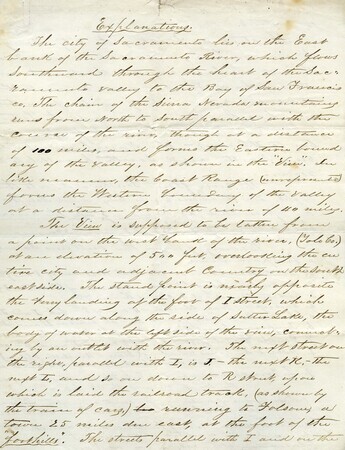 Explanations.
The city of Sacramento lies on the East
bank of the Sacramento River, which flows
Southward through the heart of the Sac-
ramento valley to the Bay of San Francis
co. The chain of the Sierra Nevada mountains
runs from North to South parallel with the
course of the river, though at a distance
of 100 miles, and forms the Eastern bound
ary of the valley, as shown in the "View". In
like manner, the Coast Range
forms the Western boundary of the valley
at a distance from the river of 40 miles.
The View is supposed to be taken from
a point on the west bank of the river, (Yolo Co.)
at an elevation of 500 feet, overlooking the en
tire city and adjacent Country on the South
east side. The stand point is nearly opposite
the ferry landing at the foot of I street, which
comes down along the side of Sutter Lake, the
body of water at the left side of the view, connect-
ing by an outlet with the river. The next street on
the right, parallel with I, is J - the next K, - the
next L, and so on down to R street, upon
which is laid the railroad track, (as shown by
the train of cars,) running to Folsom, a
town 25 miles due east, at the foot of the
"foothills". The streets parallel with I and on the